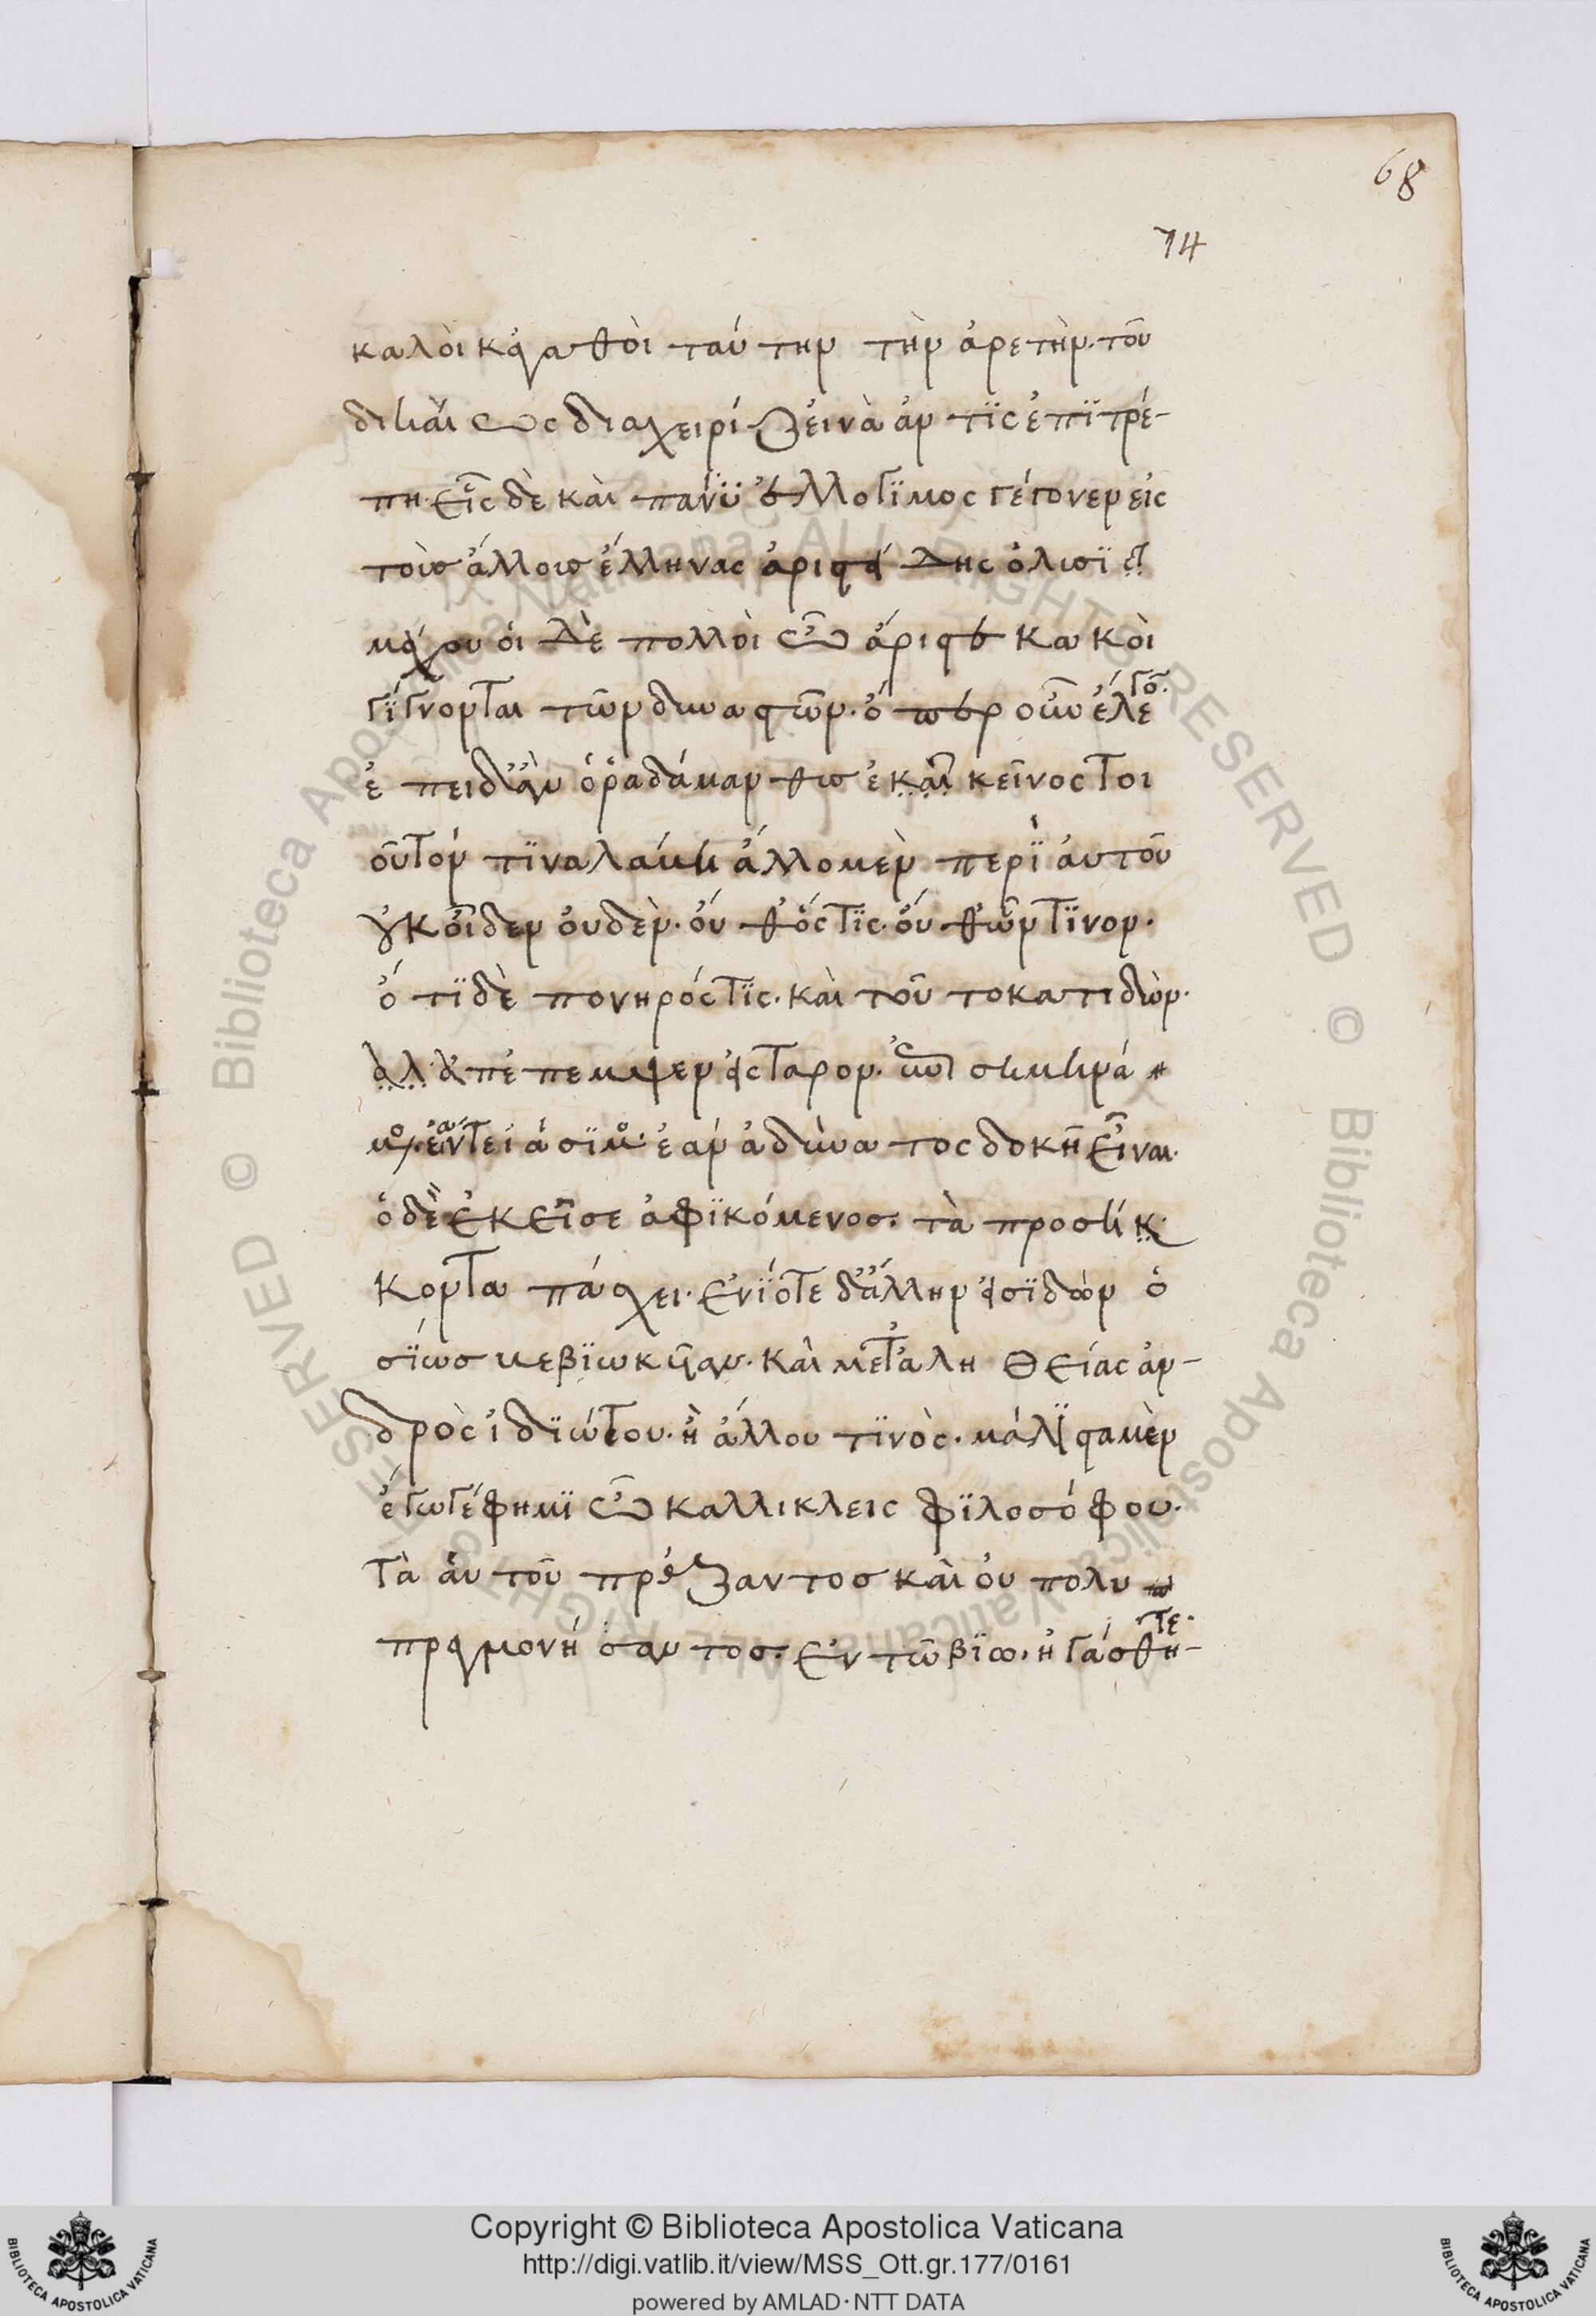 68
74
καλὸι κἀγαθὸι ταύτην τὴν ἀρετὴν. τοῦ
δικάι ως διαχειρίζειν ὰ ἄν τϊς ἐπϊτρέ-
πη. εἷς δὲ κὰι πανϋ ἐλλογϊμος γέγονεν εἰς
τοὺσ ἄλλουσ ἕλληνας ἀριστείδης ὁ λυσϊ
μάχου ὁι δὲ πολλὸι ὦ ἄριστε κακὸι
γΐγνονται τῶν δυναστῶν. ὅπερ οὖν ἔλεγο.
ἐπειδἂν ὁ ῥαδάμανθυσ ἐκαι κεῖνος τοι
οῦτόν τϊνα λάβη ἄλλο μὲν περὶ ἀυτοῦ
οὐκ οἶδεν ὀυδὲν. ὄυθ ὅς τϊς. ὄυθ ὧν τΐνων.
ὅτϊ δὲ πονηρός τϊς. κὰι τοῦτο κατιδὼν.
αλ ἀπέπεμψεν εἰς τάρταρον. ἐπισημηνά
μενος. ἐάντε ἰάσϊμος ἐάν ἀδύνατος δοκῆ εἶναι.
ὁ δὲ ἐκεῖσε ἀφϊκόμενος. τὰ προσή κ
κοντα πάσχει. ἐνΐοτε δ' ἄλλην εἰσϊδὼν ὁ
σΐωσ βεβϊωκῦιαν. κὰι μετ' ἀληθείας ἀν-
δρὸς ἰδϊώτου. ἢ ἄλλου τϊνὸς. μάλϊστα μὲν
ἔγωγέ φημϊ ὦ καλλικλεις φϊλοσόφου.
τὰ ἁυτοῦ πράξαντοσ κὰι ὀυ πολυ π
πραγμονήσαντοσ. ἐν τῶ βΐω. ἠγάσθη-τε.
Copyright © Biblioteca Apostolica Vaticana
http://digi.vatlib.it/view/MSS_Ott.gr.177/0161
powered by AMLAD·NTT DATA